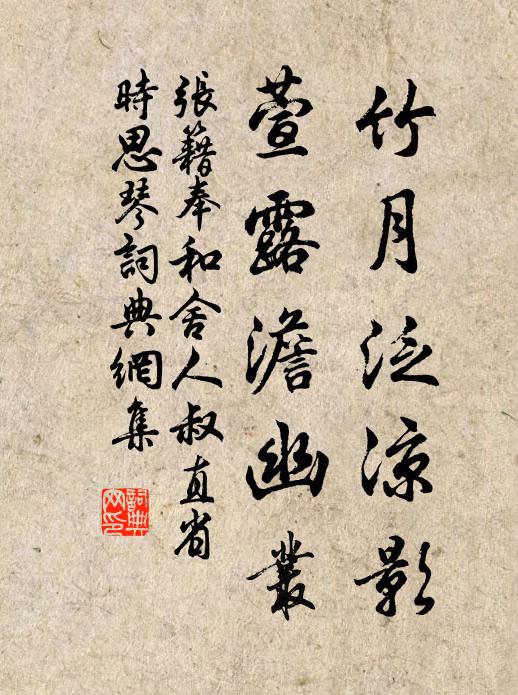 竹月泛凉影
萱露澹幽叢
張籍奉和舍人叔直省
時思琴詞典網集
詞典网印